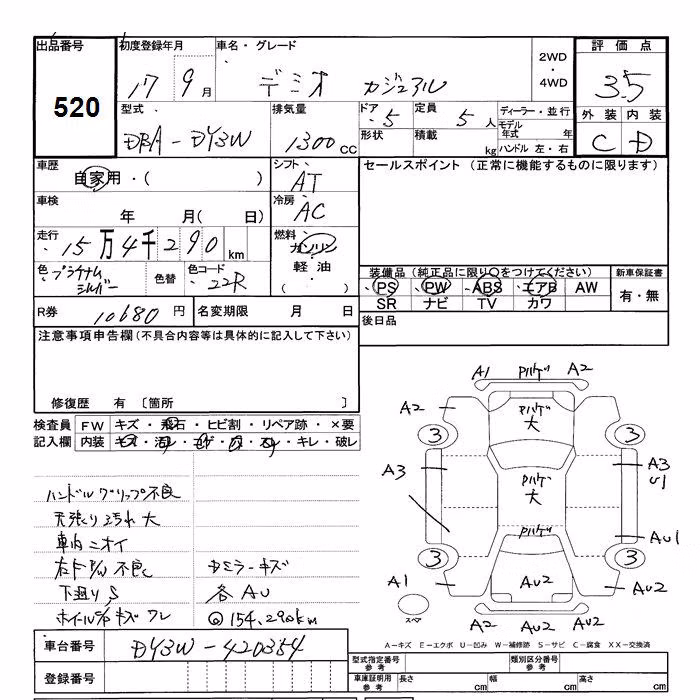 出品番号
520
初度登録年月
17 9 月
車名・グレード
デミオ カジュアル
2WD
・
4WD
評価点
3.5
外装 内装
C D
型式
DBA-DY3W
排気量
1300 cc
ドア 5
定員 5 人
形状
積載 kg
ディーラー・並行
モデル年式 年
ハンドル 左・右
車歴
自家用・( )
シフト
AT
セールスポイント (正常に機能するものに限ります)
車検
年 月( 日)
冷房
AC
走行
15万4千290 km
燃料
ガソリン
軽油
( )
色 プラチナムシルバー
色替
色コード 22R
装備品(純正品に限り○をつけてください)
PS PW ABS エアB AW
SR ナビ TV カワ
新車保証書
有・無
R券 10680 円
名変期限 月 日
後日品
注意事項申告欄(不具合内容等は具体的に記入して下さい)
修復歴 有 〔箇所 〕
検査員
記入欄
FW キズ・飛石・ヒビ割・リペア跡・×要
内装 キズ・汚れ・コゲ・穴・スレ・キレ・破レ
ハンドルグリップ不良
天張り汚れ大
車内ニオイ
右ドアP/W不良
下廻りS
ホイール キズ ワレ
ミラーキズ
各AU
◎154,290km
A1 Pハゲ A2
A2 Pハゲ大
3 3
A3 Pハゲ大 A3 U1
Pハゲ AU1
3 3
A1 AU2 AU2
スペア
A2 AU2 A2
A-キズ E-エクボ U-凹み W-補修跡 S-サビ C-腐食 XX-交換済
車台番号
DY3W-420354
登録番号
型式指定番号
参考
類別区分番号
参考
車庫証明用
参考
長さ cm
幅 cm
高さ cm